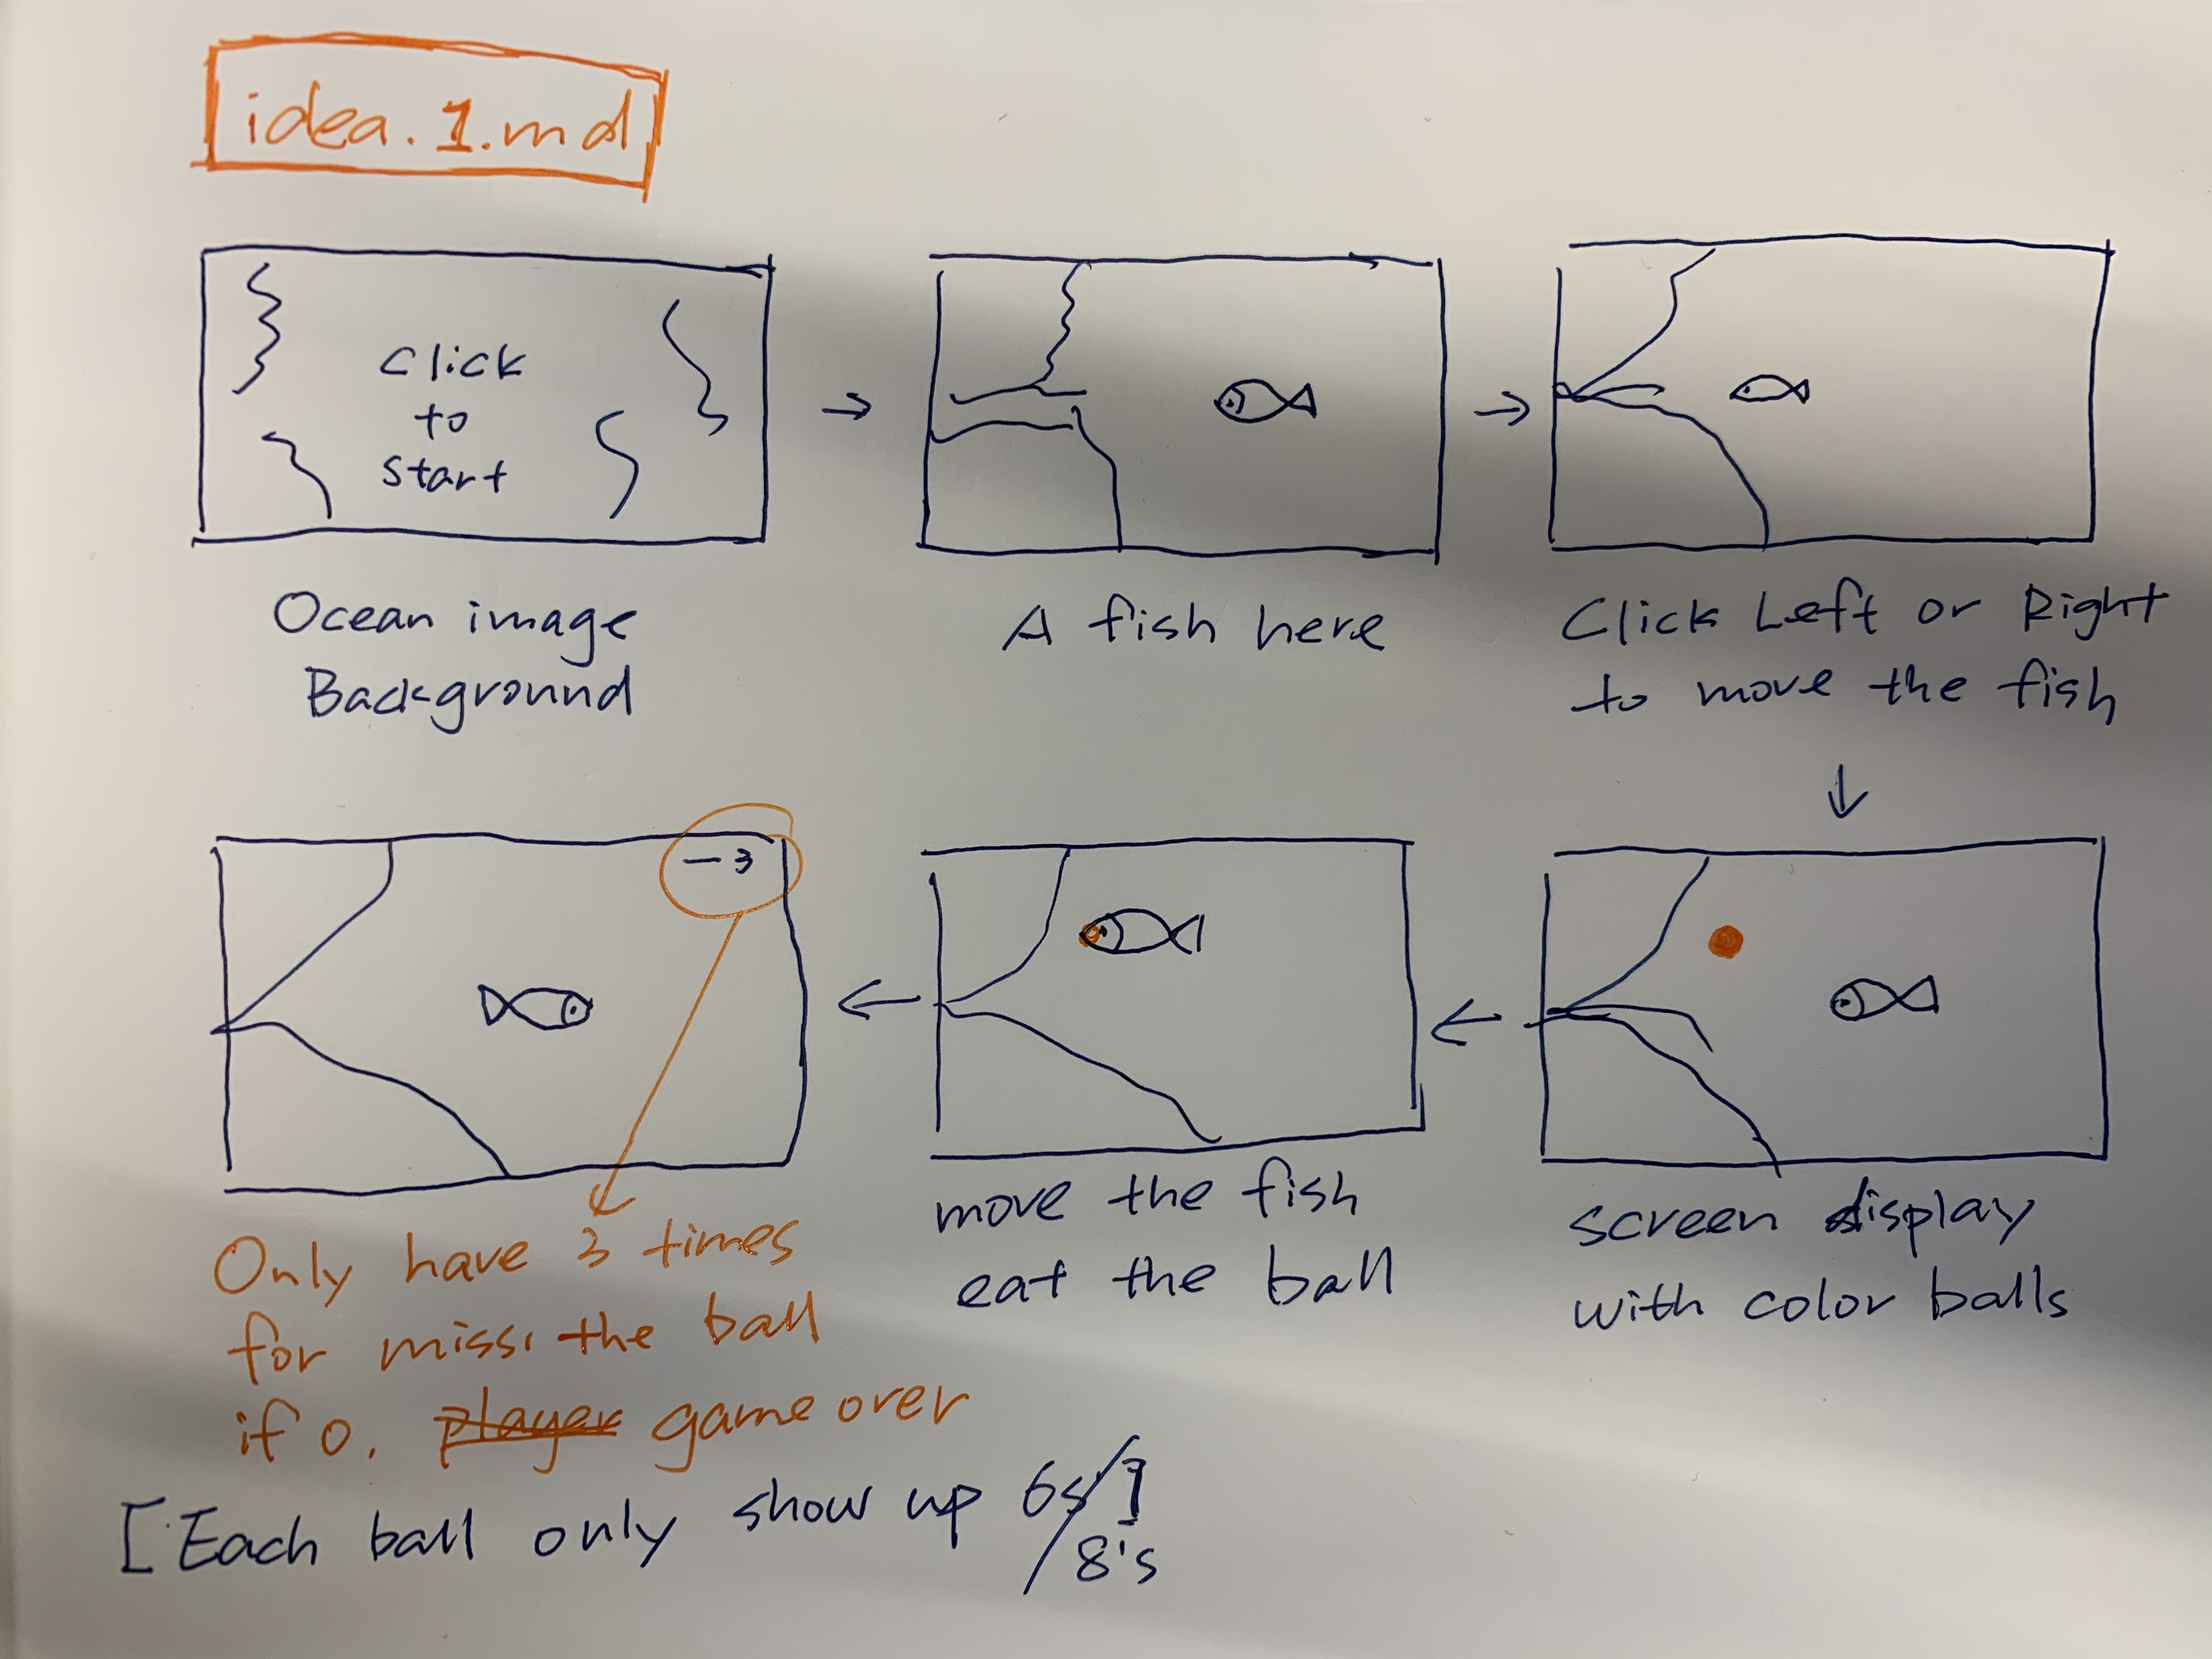 idea.1.md
Click
to
start
Ocean image
Background
A fish here
Click Left or Right
to move the fish
screen display
with color balls
move the fish
eat the ball
—3
Only have 3 times
for miss. the ball
if 0. player game over
[Each ball only show up 6s/]
/8's